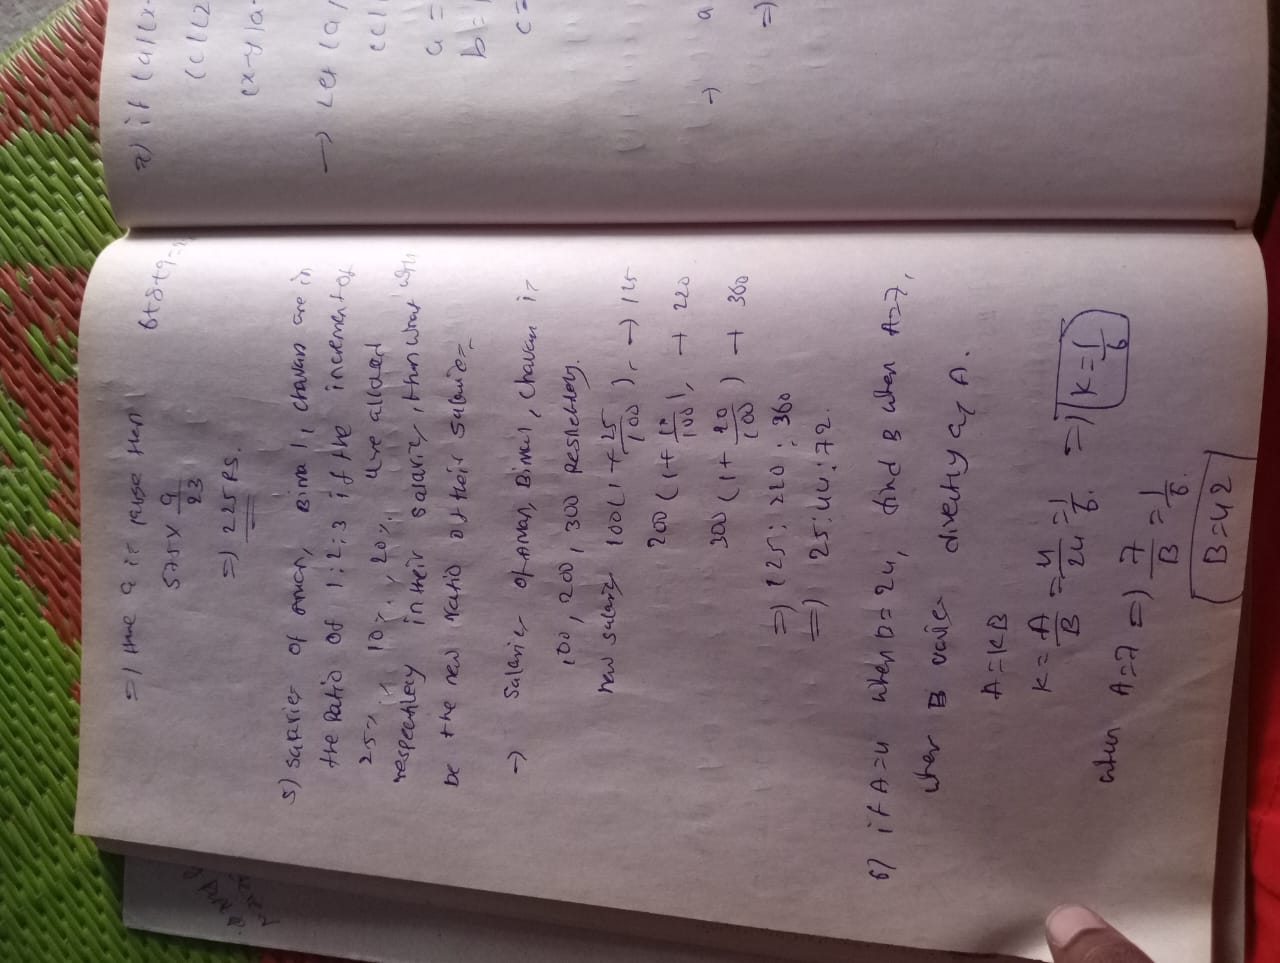 =) here a is raise then
6+8+9=
575 x 9/23
=) 225 RS.
5) salaries of aman, Bimal, chavan are in
the Ratio of 1:2:3 if the increment of
25%, 10%, 20% are allowed
respectively in their salaries, then what will
be the new ratio of their salaries
→ Salaries of aman, Bimal, chavan is
100, 200, 300 respectively.
new salary 100 (1 + 25/100) → 125
200 (1 + 10/100) → 220
300 (1 + 20/100) → 360
=) 125 : 220 : 360
=) 25 : 44 : 72.
6) if A=4 when B=24, find B when A=7,
when B varies directly as A.
A=KB
K = A/B = 4/24 = 1/6 =) K = 1/6
when A=7 =) 7/B = 1/6.
B=42
2) if
→ Let
a =
b =
c =
→ a
=)